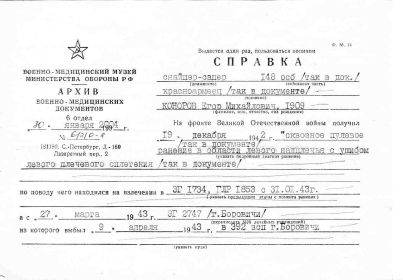 Ф. № 14
Выдается один раз, пользоваться копиями
СПРАВКА
ВОЕННО-МЕДИЦИНСКИЙ МУЗЕЙ
МИНИСТЕРСТВА ОБОРОНЫ РФ
АРХИВ
ВОЕННО-МЕДИЦИНСКИХ
ДОКУМЕНТОВ
6 отдел
30 января 2004
№
191180, С.-Петербург, Д-180
Лазаретный пер. 2
снайпер-сапер 148 осб /так в док./
красноармеец /так в документе/
КОНОРОВ Егор Михайлович, 1909
(фамилия, имя, отчество, год рождения)
На фронте Великой Отечественной войны получил
19 декабря 1942 г. "сквозное пулевое
/так в документе/
ранение в области левого надплечья с ушибом
(указать подробный диагноз ранения)
левого плечевого сплетения /так в документе/
по поводу чего находился на излечении в ЭГ 1734, ГЛР 1853 с 31.01.43г.
а с 27 марта 1943 г. ЭГ 2747 /г.Боровичи/
из которого выбыл 9 апреля 1943 г. в 392 зсп г.Боровичи
(указать куда)